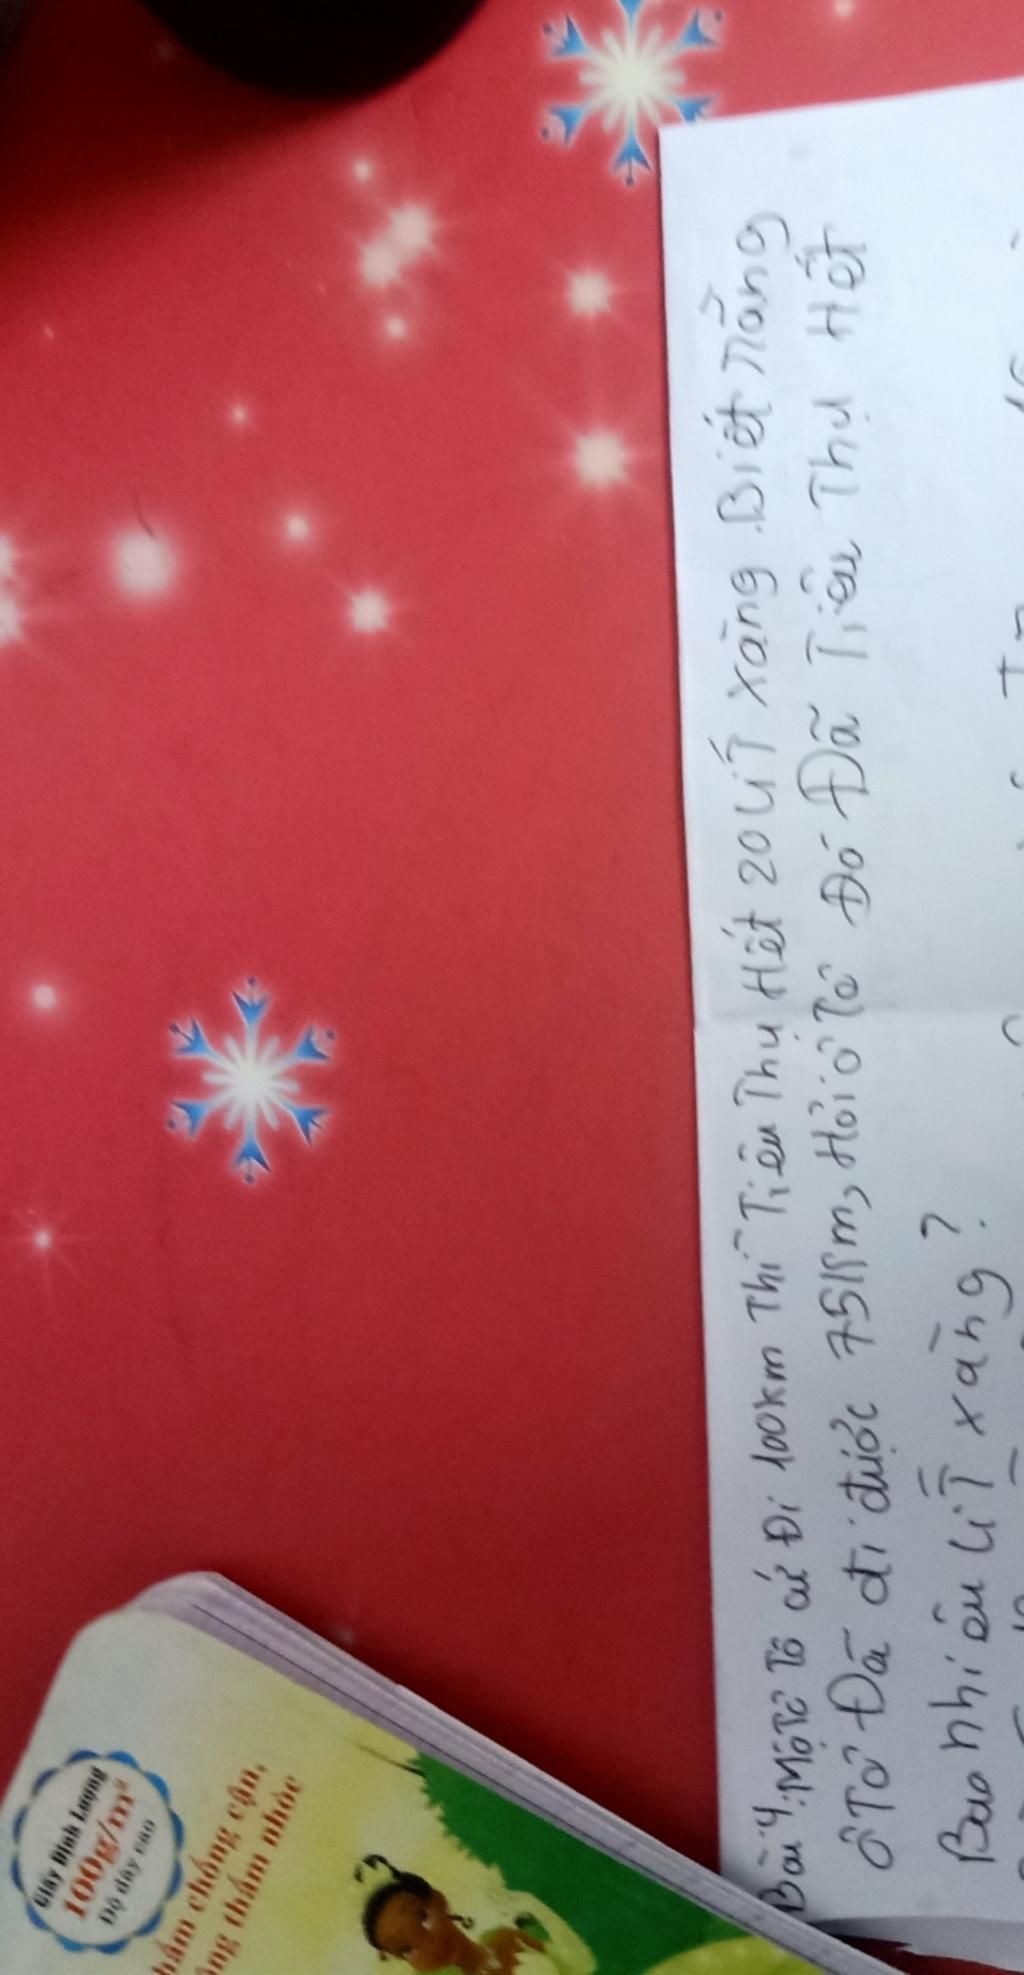 Bài 4: Một ô tô cứ Đi 100km Thì Tiêu Thụ Hết 20 lít xăng. Biết rằng
ô Tô Đã đi được 75km, Hỏi ô Tô Đó Đã Tiêu Thụ Hết
Bao nhiêu lít xăng?
Giấy Định Lượng
100g/m²
Độ dày cao
chống cận,
thấm nhòe